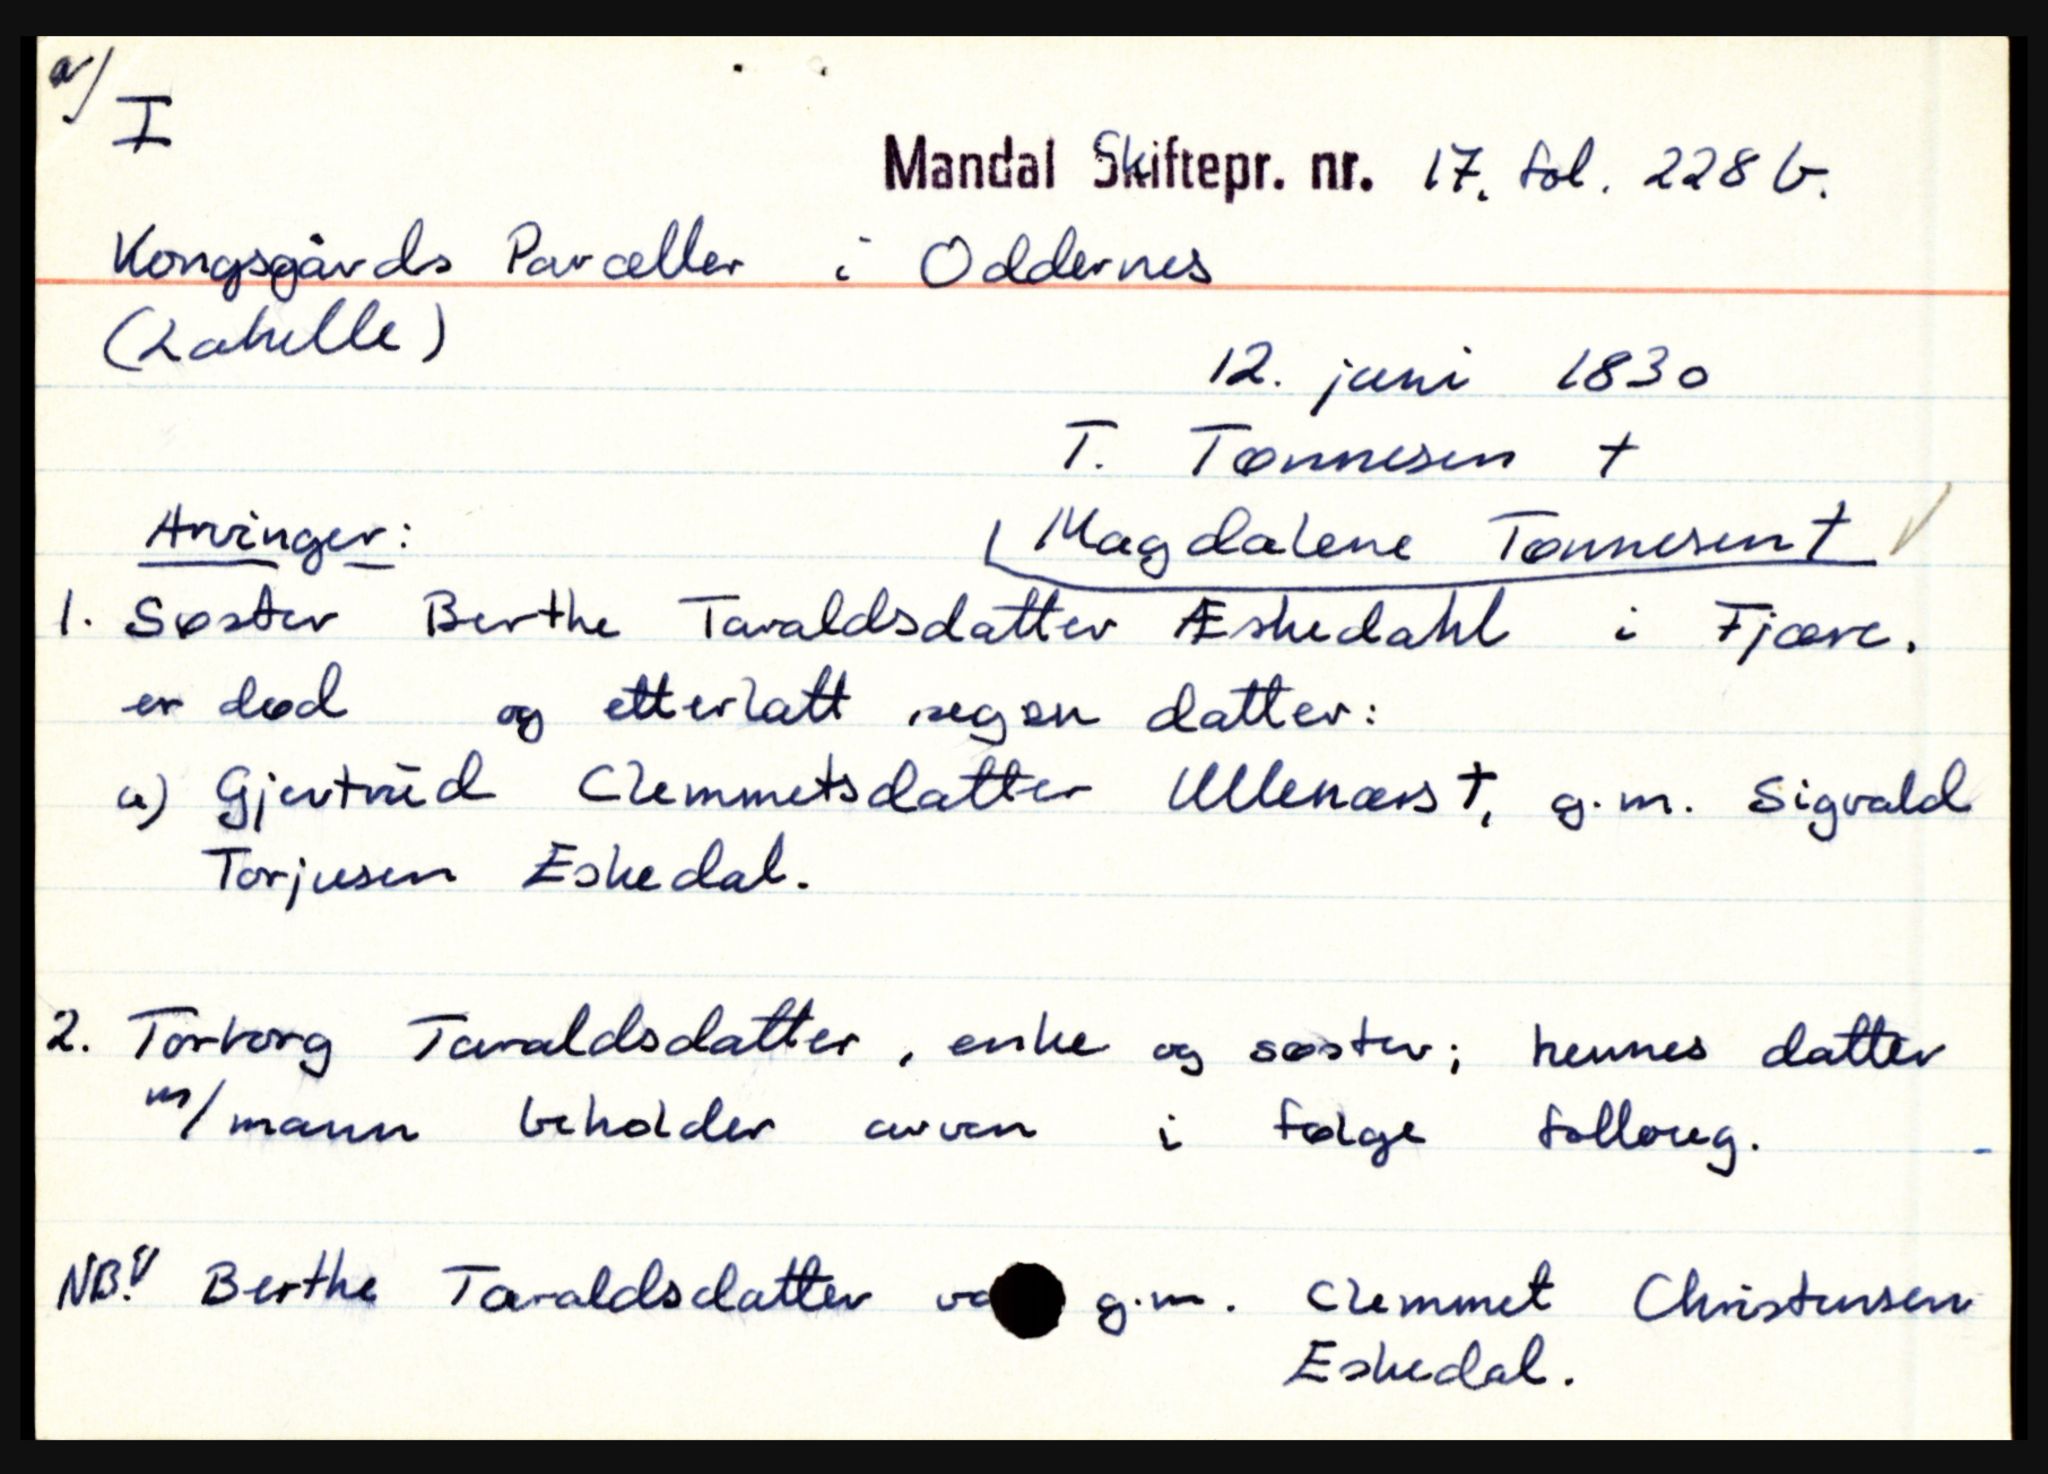 a/
I
Mandal Skiftepr. nr. 17. fol. 228 b.
Kongsgårds Parcæller i Oddernes
(Lahelle)
12. juni 1830
T. Tønnesen †
Arvinger:
Magdalene Tønnesen †
1. Søster Berthe Taraldsdatter Æskedahl i Fjære.
er død og etterlatt seg en datter:
a) Gjertrud Clemmetsdatter Ullenæs †, g.m. Sigvald
Torjusen Eskedal.
2. Torborg Taraldsdatter, enke og søster; hennes datter
m/mann beholder arven i følge folloug.
NB! Berthe Taraldsdatter va g.m. Clemmet Christensen
Eskedal.